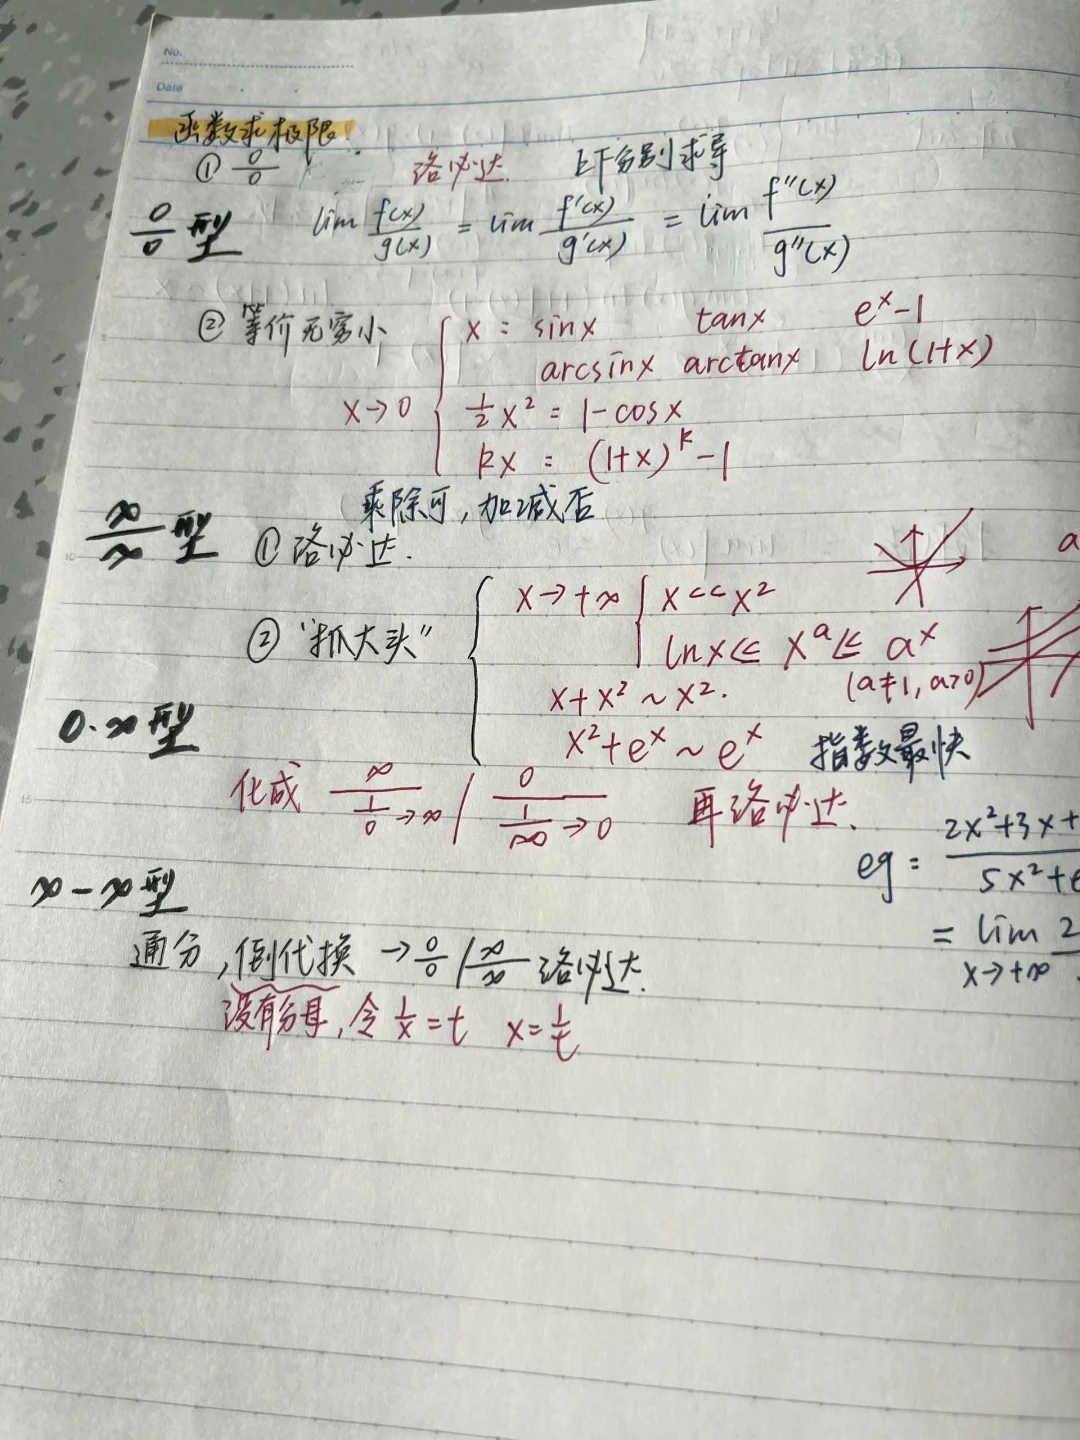 No.
Date
函数求极限:
① 0/0 洛必达. 上下分别求导
0/0 型 lim f(x)/g(x) = lim f'(x)/g'(x) = lim f''(x)/g''(x)
② 等价无穷小 x : sinx tanx e^x-1
arcsinx arctanx ln(1+x)
x→0 1/2 x² = 1-cosx
kx = (1+x)^k -1
乘除可, 加减否
∞/∞ 型 ① 洛必达.
② "抓大头" x→+∞ x<<x²
lnx ≤ x^a ≤ a^x
(a≠1, a>0)
x+x² ~ x².
x²+e^x ~ e^x 指数最快
0·∞型
化成 ∞/(1/0→∞) / 0/(1/∞→0) 再洛必达.
eg: (2x²+3x+)/(5x²+
= lim x→+∞ 2
∞-∞型
通分, 倒代换 → 0/0 / ∞/∞ 洛必达.
没有分母, 令 1/x = t x = 1/t